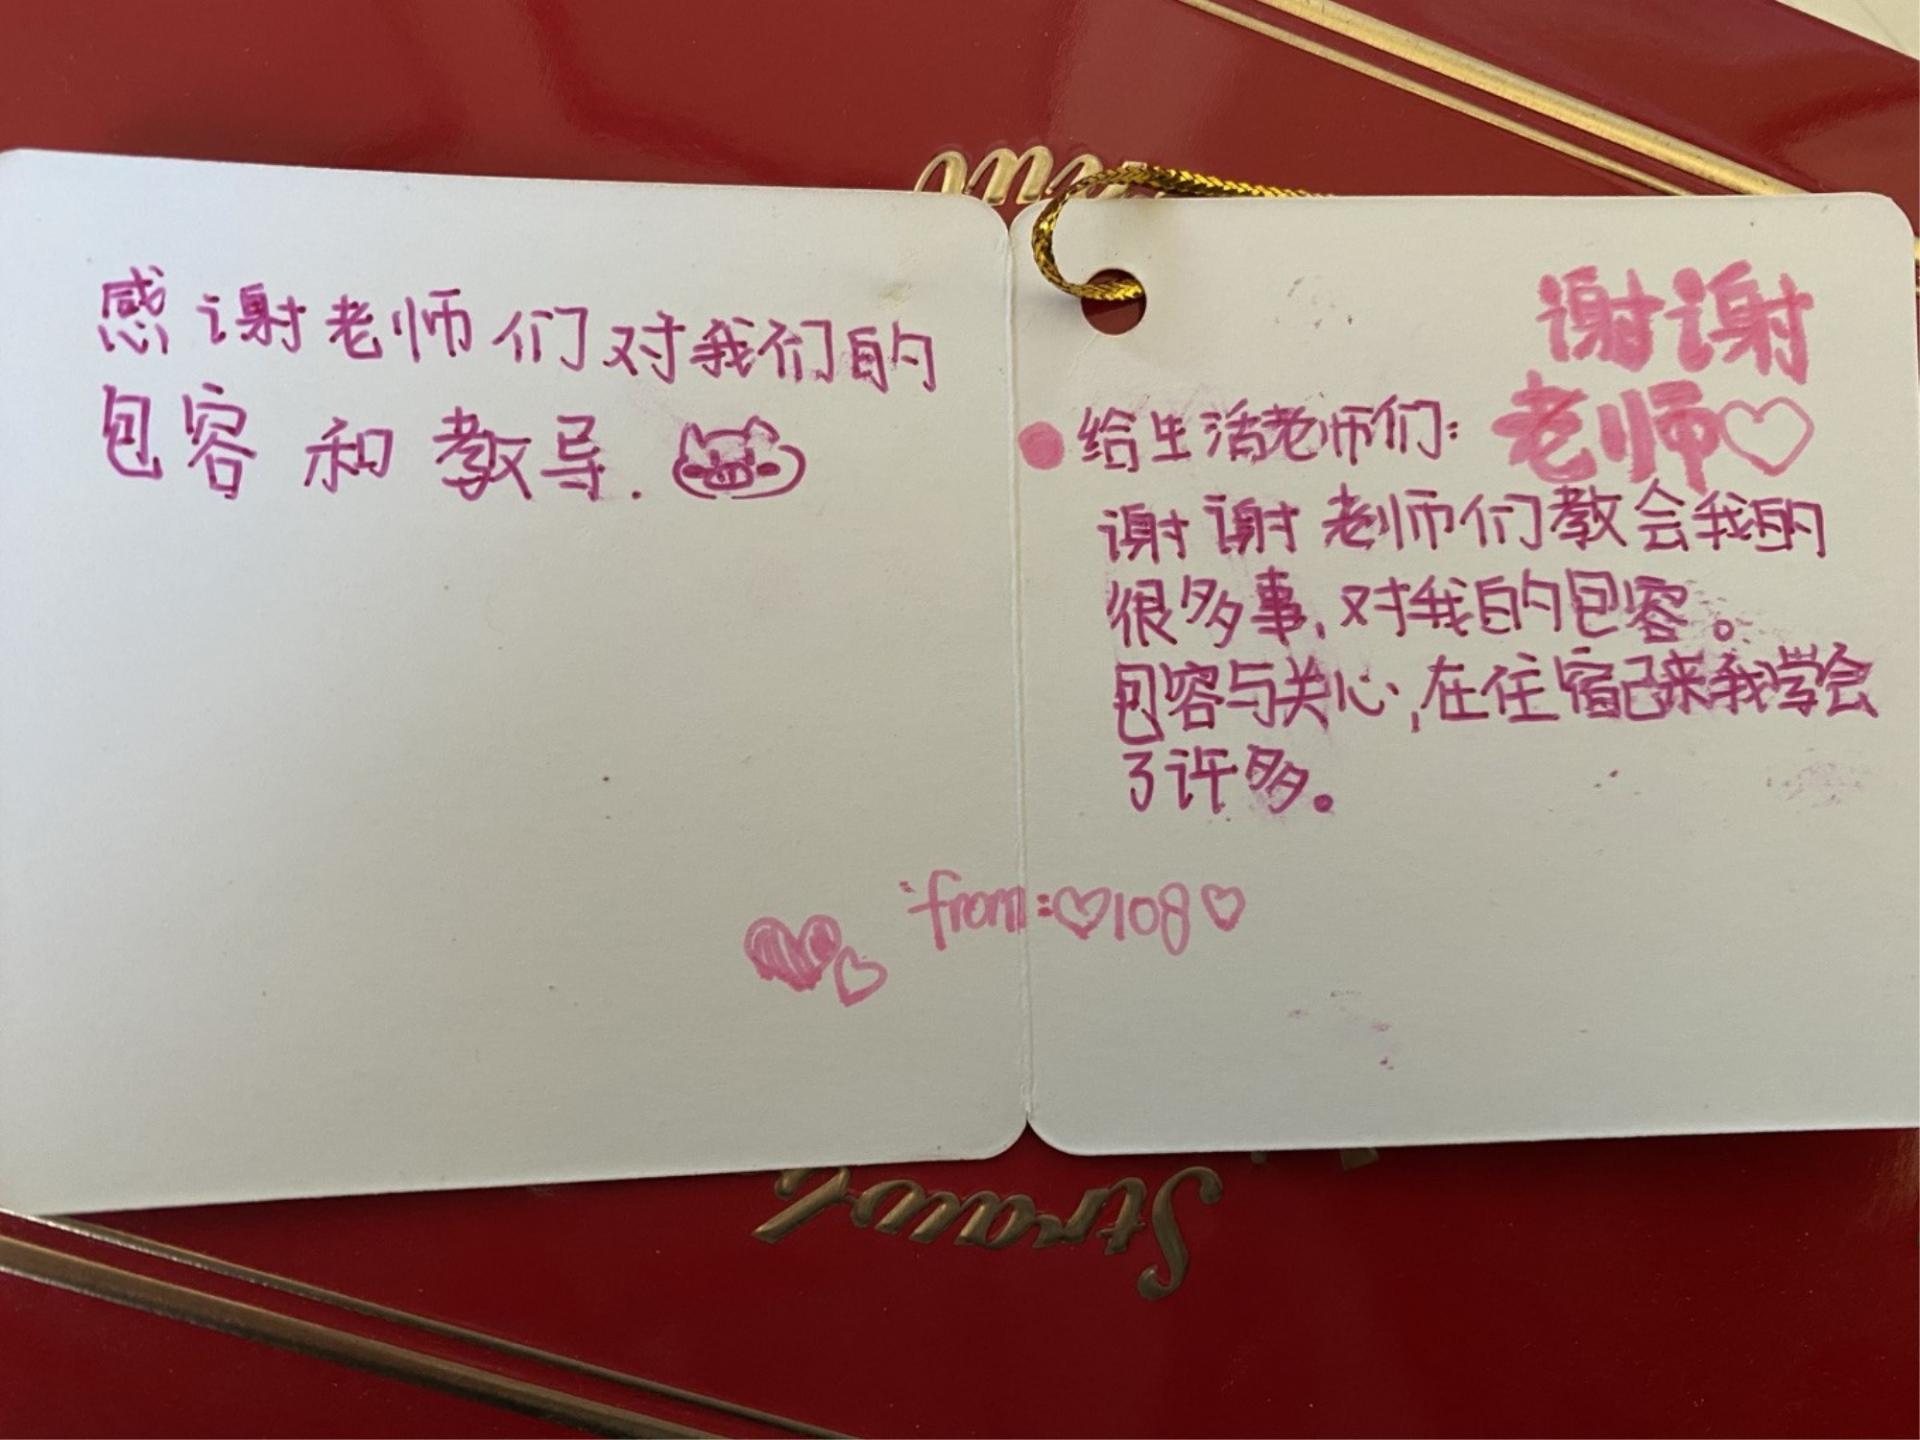 感谢老师们对我们的
包容和教导.
谢谢
老师♡
给生活老师们:
谢谢老师们教会我的
很多事,对我的包容。
包容与关心,在住宿己来我学会
了许多。
:from:♡108♡
Straw